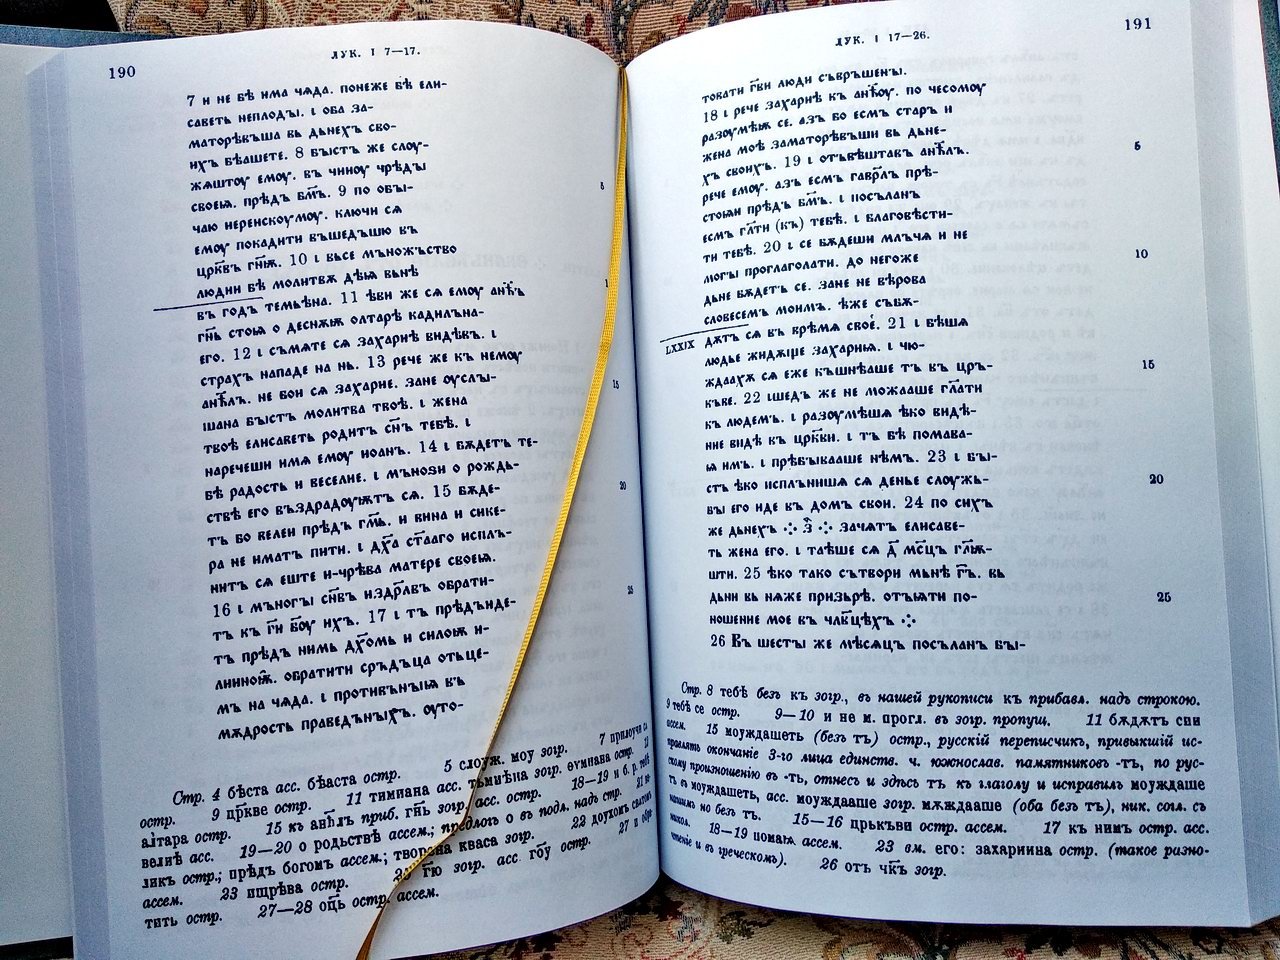 190
ЛУК. I 7—17.
7 и не бѣ има чѧда. понеже бѣ ели-
саветь неплодꙑ. ꙇ оба за-
маторѣвъша вь дьнехъ сво-
ихъ бѣашете. 8 Бꙑстъ же слоу-
жѫштоу емоу. въ чиноу чрѣдꙑ
своеѩ. прѣдъ бм҃ъ. 9 по обꙑ-
чаю иеренскоумоу. ключи сѧ
емоу покадити въшедъшю въ
црк҃въ гн҃ѭ. 10 ꙇ вьсе мъножъство
людии бѣ молитвѫ дѣѩ вънѣ
въ годъ темьѣна. 11 ѣви же сѧ емоу анћ҃ъ
гн҃ь стоѩ о деснѫѭ олтарѣ кадилъна-
его. 12 ꙇ съмѧте сѧ захариѣ видѣвъ. ꙇ
страхъ нападе на нь. 13 рече же къ немоу
анћ҃лъ. не бои сѧ захарие. зане оуслꙑ-
шана бꙑстъ молитва твоѣ. ꙇ жена
твоѣ елисаветь родитъ сн҃ъ тебѣ. ꙇ
наречеши имѧ емоу иоанъ. 14 ꙇ бѫдетъ те-
бѣ радость и веселие. ꙇ мънози о рождь-
ствѣ его въздрадоуѭтъ сѧ. 15 бѫде-
тъ бо велеи прѣдъ гм҃ь. и вина и сике-
ра не иматъ пити. ꙇ дх҃а ст҃ааго исплъ-
нитъ сѧ еште и-чрѣва матере своеѩ.
16 ꙇ мъногꙑ сн҃въ издр҃авъ обрати-
тъ къ г҃и б҃оу ихъ. 17 ꙇ тъ прѣдъиде-
тъ прѣдъ нимь дх҃омь и силоѭ и-
лииноѭ. обратити сръдьца отьце-
мъ на чѧда. ꙇ противънꙑѩ въ
мѫдрость праведънꙑхъ. оуто-
5
15
20
25
Стр. 4 бѣста асс. бѣаста остр. 5 слоуж. моу зогр. 7 прилоучи сѧ
остр. 9 цр҃кве остр. 11 тимиана асс. тьмиѣна зогр. ѳумиана остр.
алтара остр. 15 къ анћ҃лъ приб. гн҃ь зогр. асс. остр. 18—19 и б. р. тебѣ
велиѣ асс. 19—20 о родьствѣ ассем.; предлогъ о въ подл. надъ стр.
ликъ остр.; прѣдъ богомъ ассем.; творена кваса зогр. 22 доухомъ свѧтомъ
ассем. 23 ищрѣва остр. 25 г҃ю зогр. асс. го҃у остр. 27 и обра
тить остр. 27—28 оц҃ь остр. ассем.
191
ЛУК. I 17—26.
товати г҃ви люди съврьшенꙑ.
18 ꙇ рече захариѣ къ анћ҃оу. по чесомоу
разоумѣѭ се. азъ бо есмъ старъ и
жена моѣ заматорѣвъши вь дьне-
хъ своихъ. 19 ꙇ отъвѣштавъ анћ҃лъ.
рече емоу. азъ есмъ гавр҃лъ прѣ-
стоѩи прѣдъ бм҃ъ. ꙇ посъланъ
есмъ гл҃ти (къ) тебѣ. ꙇ благовѣсти-
ти тебѣ. 20 ꙇ се бѫдеши млъчѧ и не
могꙑ проглаголати. до негоже
дьне бѫдетъ се. зане не вѣрова
словесемъ моимъ. ѣже събѫ-
LXXIX дѫтъ сѧ въ врѣмѧ своѐ. 21 ꙇ бѣшѧ
людье жидѫще захариѩ. ꙇ чю-
ждаахѫ сѧ еже къшнѣаше тъ въ цръ-
къве. 22 ꙇшедъ же не можааше гл҃ати
къ людемъ. ꙇ разоумѣшѧ ѣко видѣ-
ние видѣ къ црк҃ви. ꙇ тъ бѣ помава-
ѩ имъ. ꙇ прѣбꙑвааше нѣмъ. 23 ꙇ бꙑ-
стъ ѣко исплънишѧ сѧ денье слоужь-
бꙑ его иде къ домъ свои. 24 по сихъ
же дьнехъ ⁘ з҃ ⁘ зачѧтъ елисаве-
ть жена его. ꙇ таѣше сѧ д҃ мс҃ць гл҃ѭ-
шти. 25 ѣко тако сътвори мьнѣ г҃ъ. вь
дьни вь нѧже призьрѣ. отъѩти по-
ношение мое въ чл҃вцѣхъ ⁘
26 Въ шестꙑ же мѣсѧць посъланъ бꙑ-
5
10
15
20
25
Стр. 8 тебѣ безъ къ зогр., въ нашей рукописи къ прибавл. надъ строкою.
9 тебѣ се остр. 9—10 и не м. прогл. въ зогр. пропущ. 11 бѫдѫтъ сии
ассем. 15 моуждашеть (безъ тъ) остр., русскій переписчикъ, привыкшій ис-
правлять окончаніе 3-го лица единств. ч. югославск. памятниковъ -тъ, по рус-
скому произношенію въ -ть, отнесъ и здѣсь тъ къ глаголу и исправилъ моуждаше
тъ въ моуждашеть, асс. моуждааше зогр. мѫждааше (оба безъ тъ), ник. согл. съ
нашимъ но безъ тъ. 15—16 црькъви остр. ассем. 17 къ нимъ остр. асс.
никол. 18—19 помаѩ ассем. 23 вм. его: захариина остр. (такое разно-
чтеніе и въ греческомъ). 26 отъ чк҃ъ зогр.